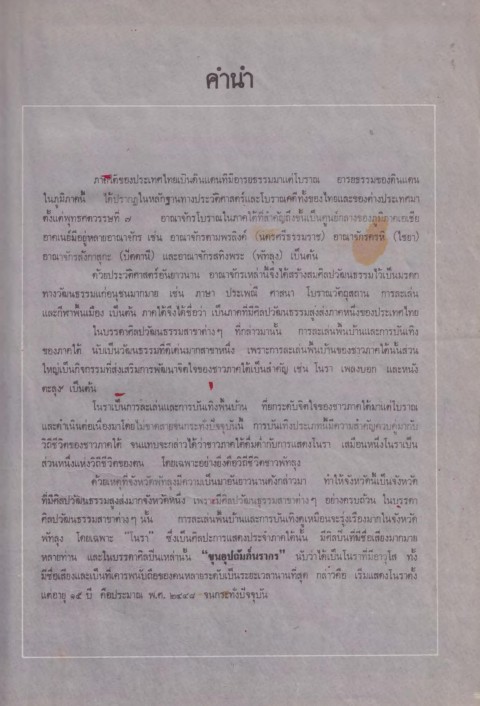 คำนำ
ภาคใต้ของประเทศไทยเป็นดินแดนที่มีอารยธรรมมาแต่โบราณ อารยธรรมของดินแดน
ในภูมิภาคนี้ ได้ปรากฏในหลักฐานทางประวัติศาสตร์และโบราณคดีทั้งของไทยและของต่างประเทศมา
ตั้งแต่พุทธศตวรรษที่ ๗ อาณาจักรโบราณในภาคใต้ที่สำคัญถึงขั้นเป็นศูนย์กลางของภูมิภาคเอเชีย
อาคเนย์มีอยู่หลายอาณาจักร เช่น อาณาจักรตามพรลิงค์ (นครศรีธรรมราช) อาณาจักรครหิ (ไชยา)
อาณาจักรลังกาสุกะ (ปัตตานี) และอาณาจักรสทิงพระ (พัทลุง) เป็นต้น
ด้วยประวัติศาสตร์อันยาวนาน อาณาจักรเหล่านี้จึงได้สร้างสมศิลปวัฒนธรรมไว้เป็นมรดก
ทางวัฒนธรรมแก่อนุชนมากมาย เช่น ภาษา ประเพณี ศาสนา โบราณวัตถุสถาน การละเล่น
และกีฬาพื้นเมือง เป็นต้น ภาคใต้จึงได้ชื่อว่า เป็นภาคที่มีศิลปวัฒนธรรมสูงส่งภาคหนึ่งของประเทศไทย
ในบรรดาศิลปวัฒนธรรมสาขาต่างๆ ที่กล่าวมานั้น การละเล่นพื้นบ้านและการบันเทิง
ของภาคใต้ นับเป็นวัฒนธรรมที่ดีเด่นมากสาขาหนึ่ง เพราะการละเล่นพื้นบ้านของชาวภาคใต้นั้นส่วน
ใหญ่เป็นกิจกรรมที่ส่งเสริมการพัฒนาจิตใจของชาวภาคใต้เป็นสำคัญ เช่น โนรา เพลงบอก และหนัง
ตะลุงฯ เป็นต้น
โนราเป็นการละเล่นและการบันเทิงพื้นบ้าน ที่ยกระดับจิตใจของชาวภาคใต้มาแต่โบราณ
และดำเนินต่อเนื่องมาโดยไม่ขาดสายจนกระทั่งปัจจุบันนี้ การบันเทิงประเภทนี้มีความสำคัญควบคู่มากับ
วิถีชีวิตของชาวภาคใต้ จนแทบจะกล่าวได้ว่าชาวภาคใต้ดื่มด่ำกับการแสดงโนรา เสมือนหนึ่งโนราเป็น
ส่วนหนึ่งแห่งวิถีชีวิตของตน โดยเฉพาะอย่างยิ่งคือวิถีชีวิตชาวพัทลุง
ด้วยเหตุที่จังหวัดพัทลุงมีความเป็นมาอันยาวนานดังกล่าวมา ทำให้จังหวัดนี้เป็นจังหวัด
ที่มีศิลปวัฒนธรรมสูงส่งมากจังหวัดหนึ่ง เพราะมีศิลปวัฒนธรรมสาขาต่างๆ อย่างครบถ้วน ในบรรดา
ศิลปวัฒนธรรมสาขาต่างๆ นั้น การละเล่นพื้นบ้านและการบันเทิงดูเหมือนจะรุ่งเรืองมากในจังหวัด
พัทลุง โดยเฉพาะ "โนรา" ซึ่งเป็นศิลปะการแสดงประจำภาคใต้นั้น มีศิลปินที่มีชื่อเสียงมากมาย
หลายท่าน และในบรรดาศิลปินเหล่านั้น "ขุนอุปถัมภ์นรากร" นับว่าได้เป็นโนราที่มีอาวุโส ทั้ง
มีชื่อเสียงและเป็นที่เคารพนับถือของคนหลายระดับเป็นระยะเวลานานที่สุด กล่าวคือ เริ่มแสดงโนราตั้ง
แต่อายุ ๑๕ ปี คือประมาณ พ.ศ. ๒๔๔๘ จนกระทั่งปัจจุบัน